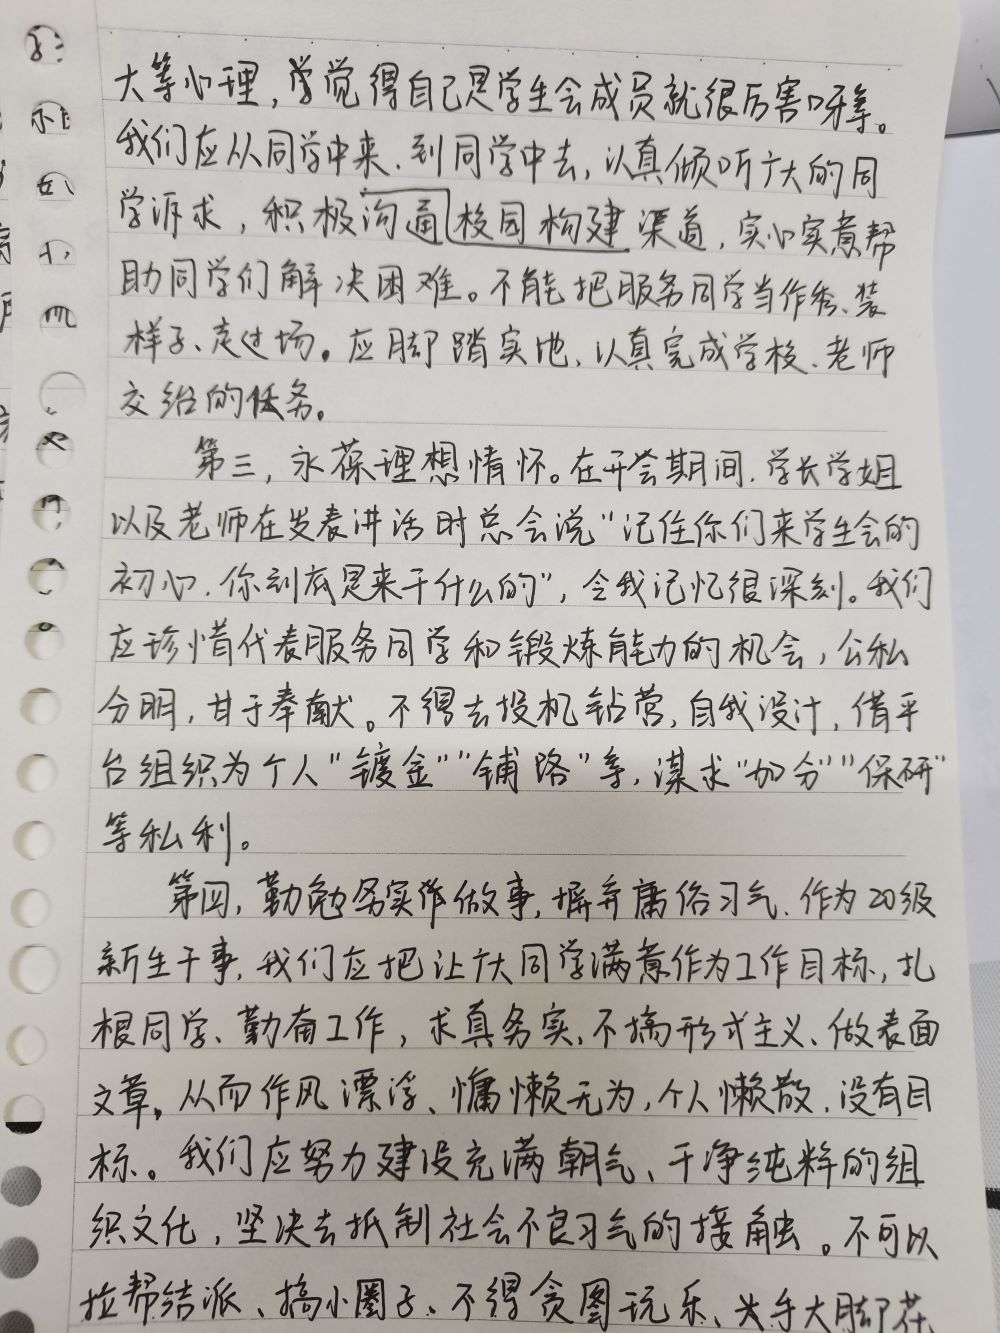 大等心理，学觉得自己是学生会成员就很厉害呀等。
我们应从同学中来、到同学中去，认真倾听广大的同
学诉求，积极沟通校园构建渠道，实心实意帮
助同学们解决困难。不能把服务同学当作秀、装
样子、走过场。应脚踏实地、认真完成学校、老师
交给的任务。
第三，永葆理想情怀。在开会期间、学长学姐
以及老师在发表讲话时总会说“记住你们来学生会的
初心、你到底是来干什么的”，令我记忆很深刻。我们
应珍惜代表服务同学和锻炼能力的机会，公私
分明，甘于奉献。不得去投机钻营，自我设计，借平
台组织为个人“镀金”“铺路”等，谋求“加分”“保研”
等私利。
第四，勤勉务实作做事，摒弃庸俗习气、作为20级
新生干事，我们应把让广大同学满意作为工作目标，扎
根同学、勤奋工作，求真务实、不搞形式主义、做表面
文章，从而作风漂浮、慵懒无为，个人懒散、没有目
标。我们应努力建设充满朝气、干净纯粹的组
织文化，坚决去抵制社会不良习气的接触。不可以
拉帮结派、搞小圈子、不得贪图玩乐、大手大脚花